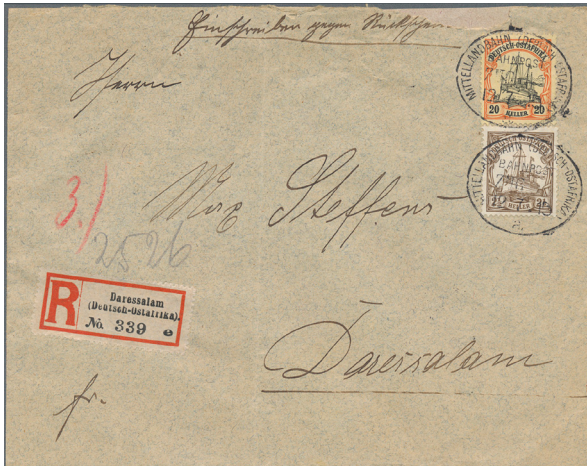 Einschreiben gegen Rückschein.
MITTELLANDBAHN (DEUTSCH-OSTAFRIKA)
BAHNPOST
DEUTSCH-OSTAFRIKA
20 HELLER 20
Herrn
MITTELLANDBAHN (DEUTSCH-OSTAFRIKA)
BAHNPOST
a.
2½ HELLER 2½
Max Steffens
3.)
2526
R
Daressalam
(Deutsch-Ostafrika).
No 339 e
Daressalam
fr.